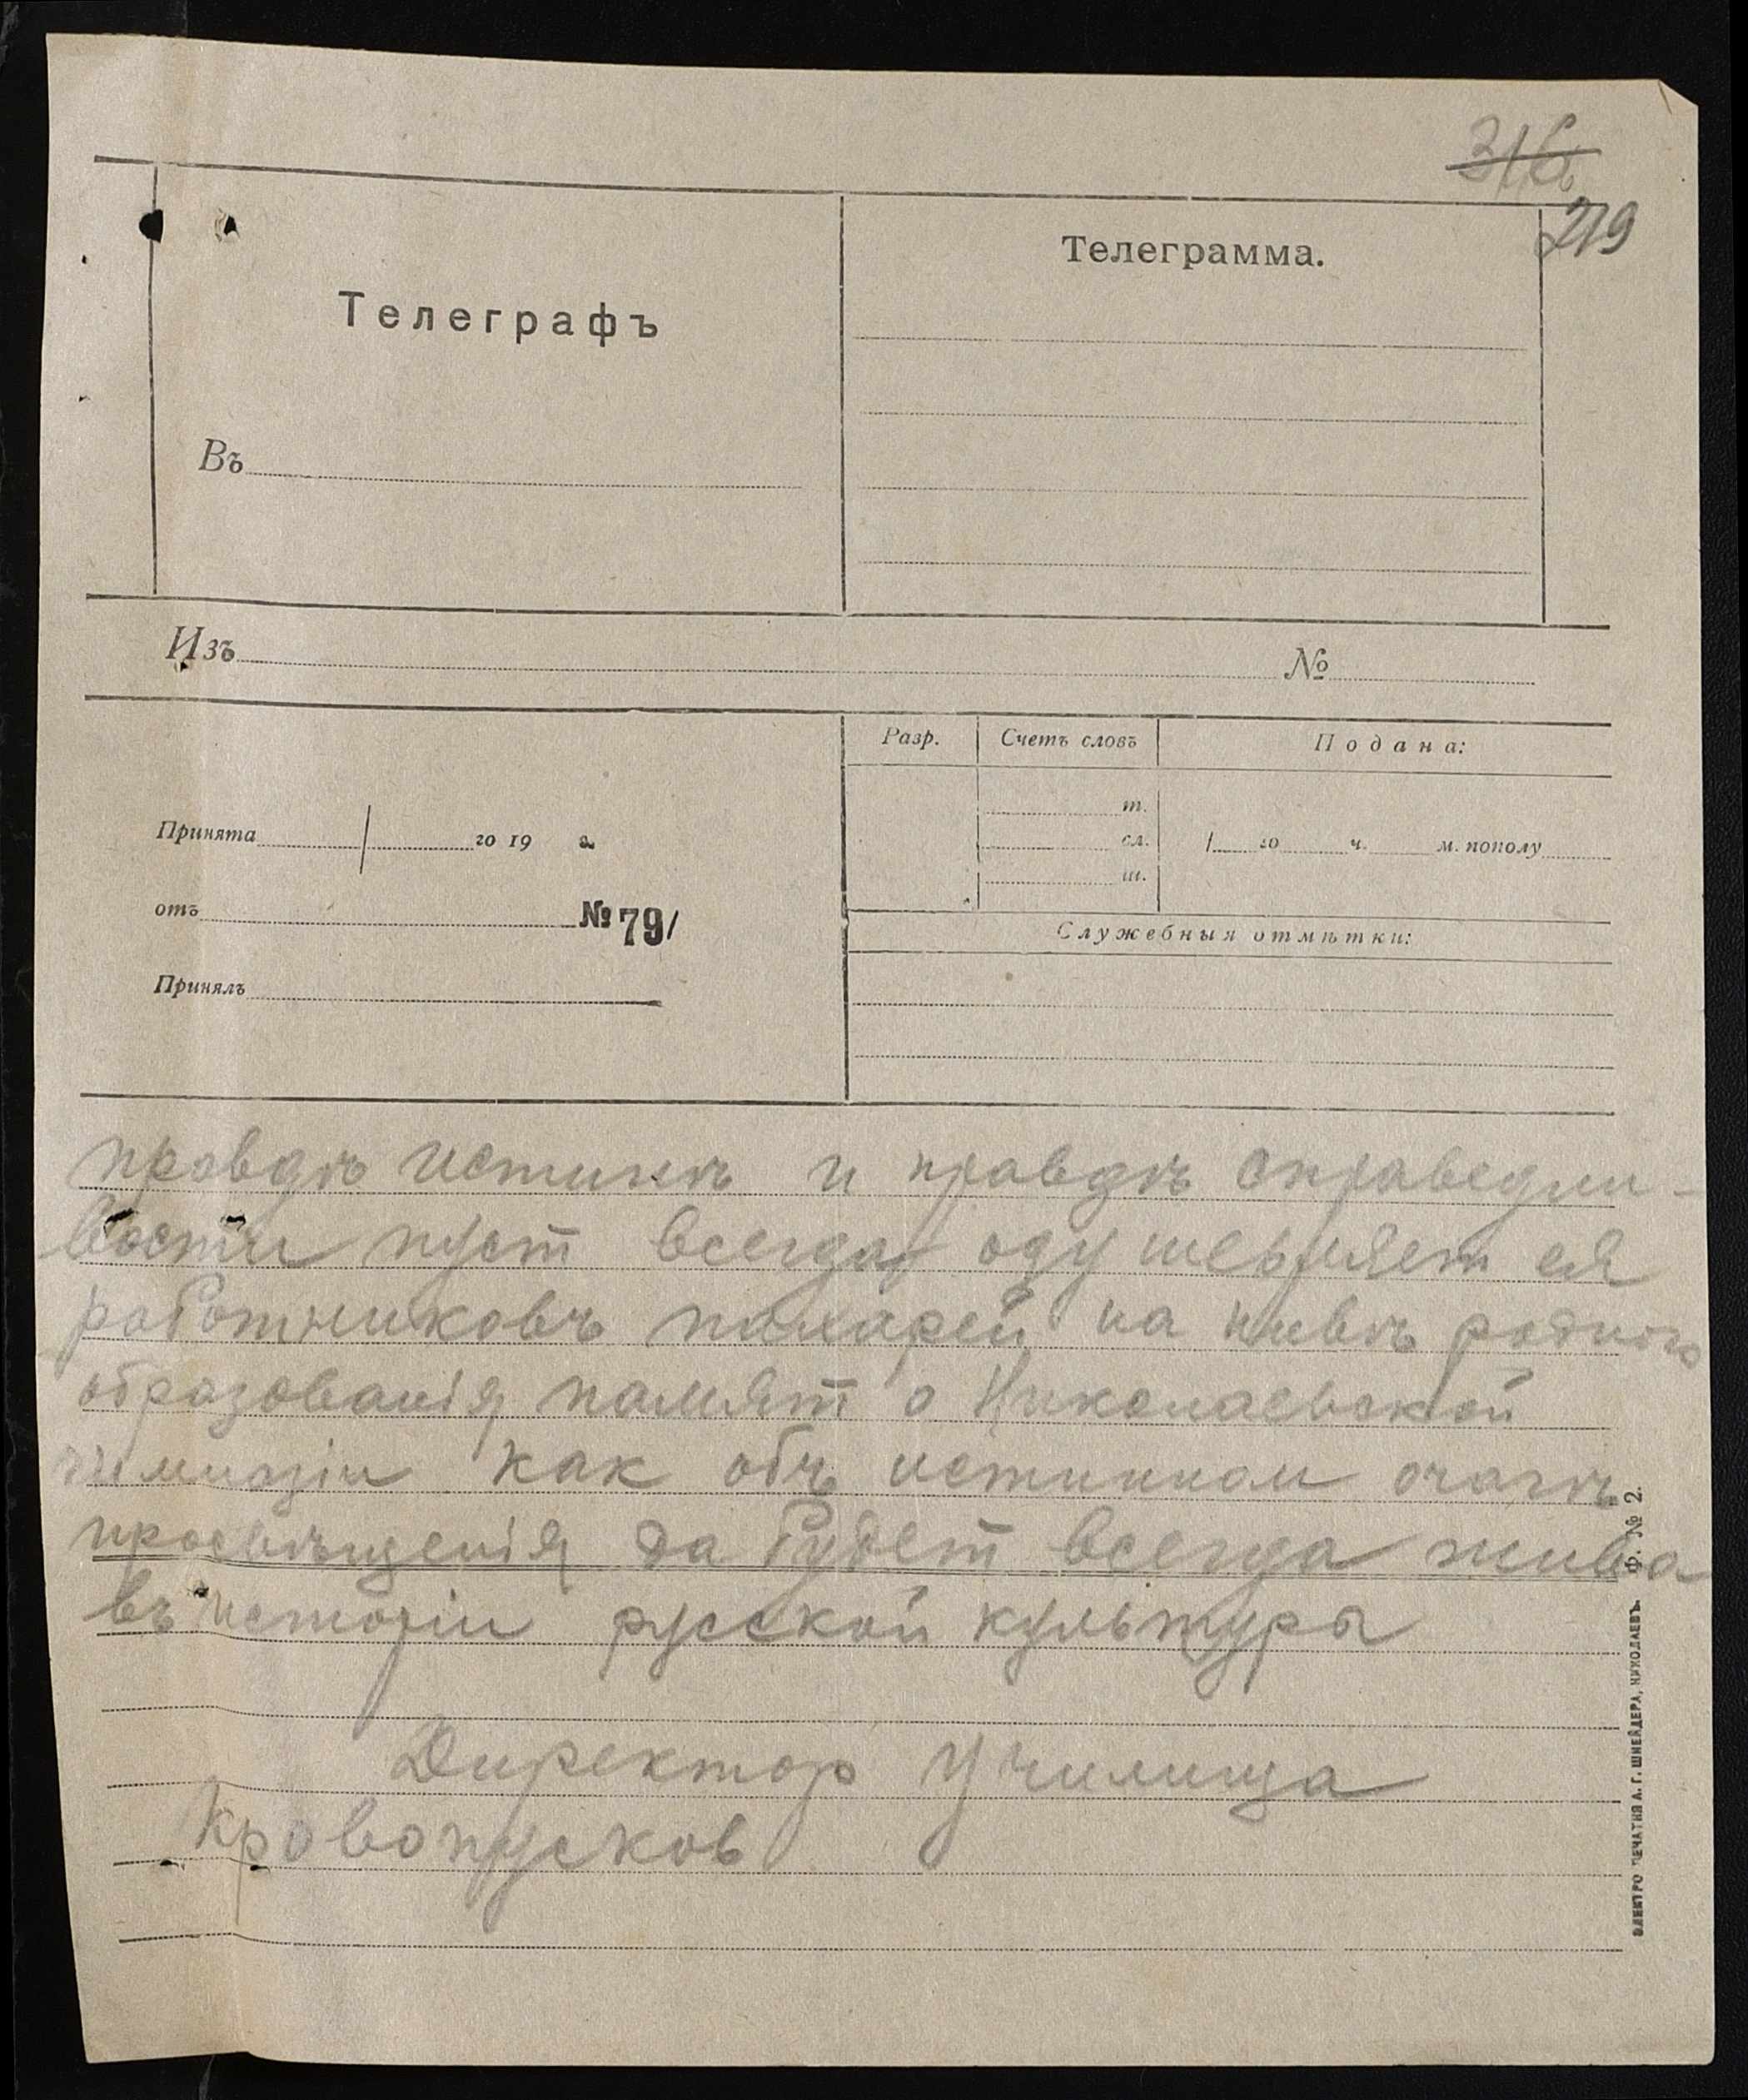 316
219
Телеграфъ
Телеграмма.
Въ
Изъ
№
Разр.
Счетъ словъ
Подана:
Принята го 19 г.
т.
сл.
ш.
/ го ч. м. пополу
отъ №79/
Служебныя отмѣтки:
Принялъ
правдѣ истинѣ и правдѣ справедли-
вости пуст всегда одушевляет ея
работниковъ пахарей на нивѣ родного
образованія памят о Николаевской
гимназіи как объ истинном очагѣ
просвѣщенія да будет всегда жива
въ исторіи русской культуры
Директор Училища
Кровопусков
ЭЛЕКТРО ПЕЧАТНЯ А. Г. ШНЕЙДЕРА, НИКОЛАЕВЪ. Ф. № 2.